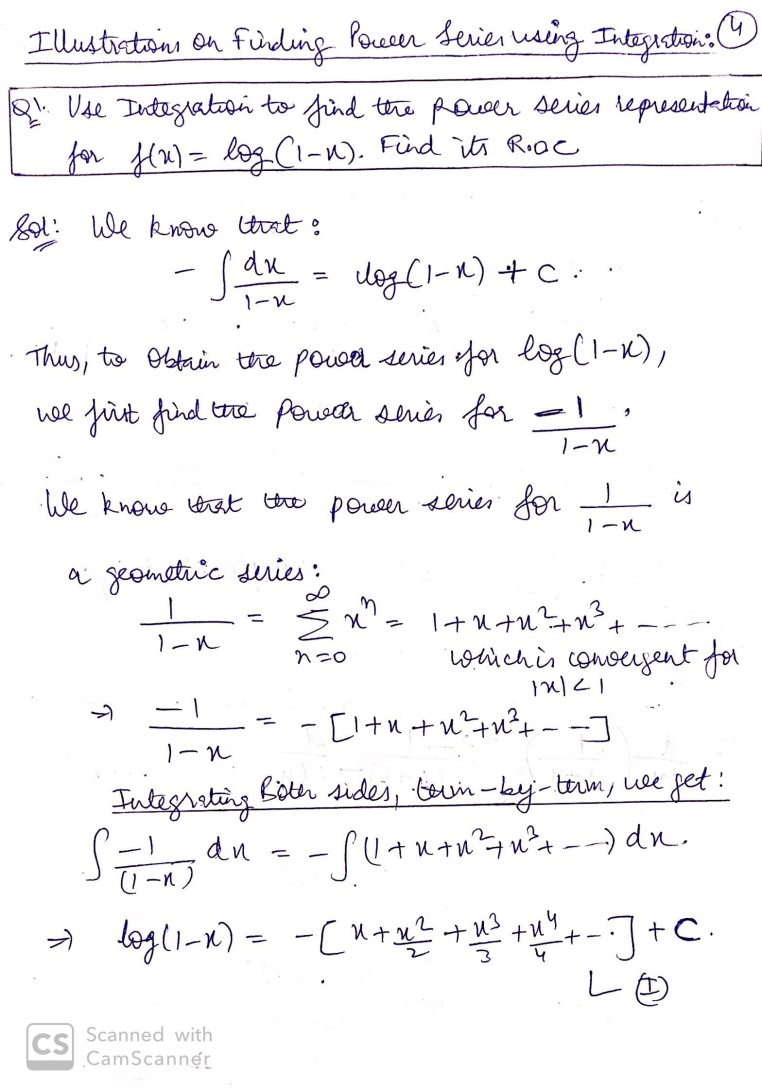 Illustrations on Finding Power Series using Integration: ④
Q1. Use Integration to find the power series representation
for f(x) = log(1-x). Find its R.O.C
Sol: We know that :
- ∫ dx/(1-x) = log(1-x) + C.
Thus, to obtain the power series for log(1-x),
we first find the Power series for -1/(1-x),
We know that the power series for 1/(1-x) is
a geometric series :
1/(1-x) = ∑_{n=0}^{∞} x^n = 1+x+x²+x³+ ----
which is convergent for
|x|<1
⇒ -1/(1-x) = - [1+x+x²+x³+ ---]
Integrating Both sides, term-by-term, we get :
∫ -1/(1-x) dx = - ∫(1+x+x²+x³+ ---) dx.
⇒ log(1-x) = - [x + x²/2 + x³/3 + x⁴/4 + --.] + C.
Ⓘ
CS Scanned with
CamScanner